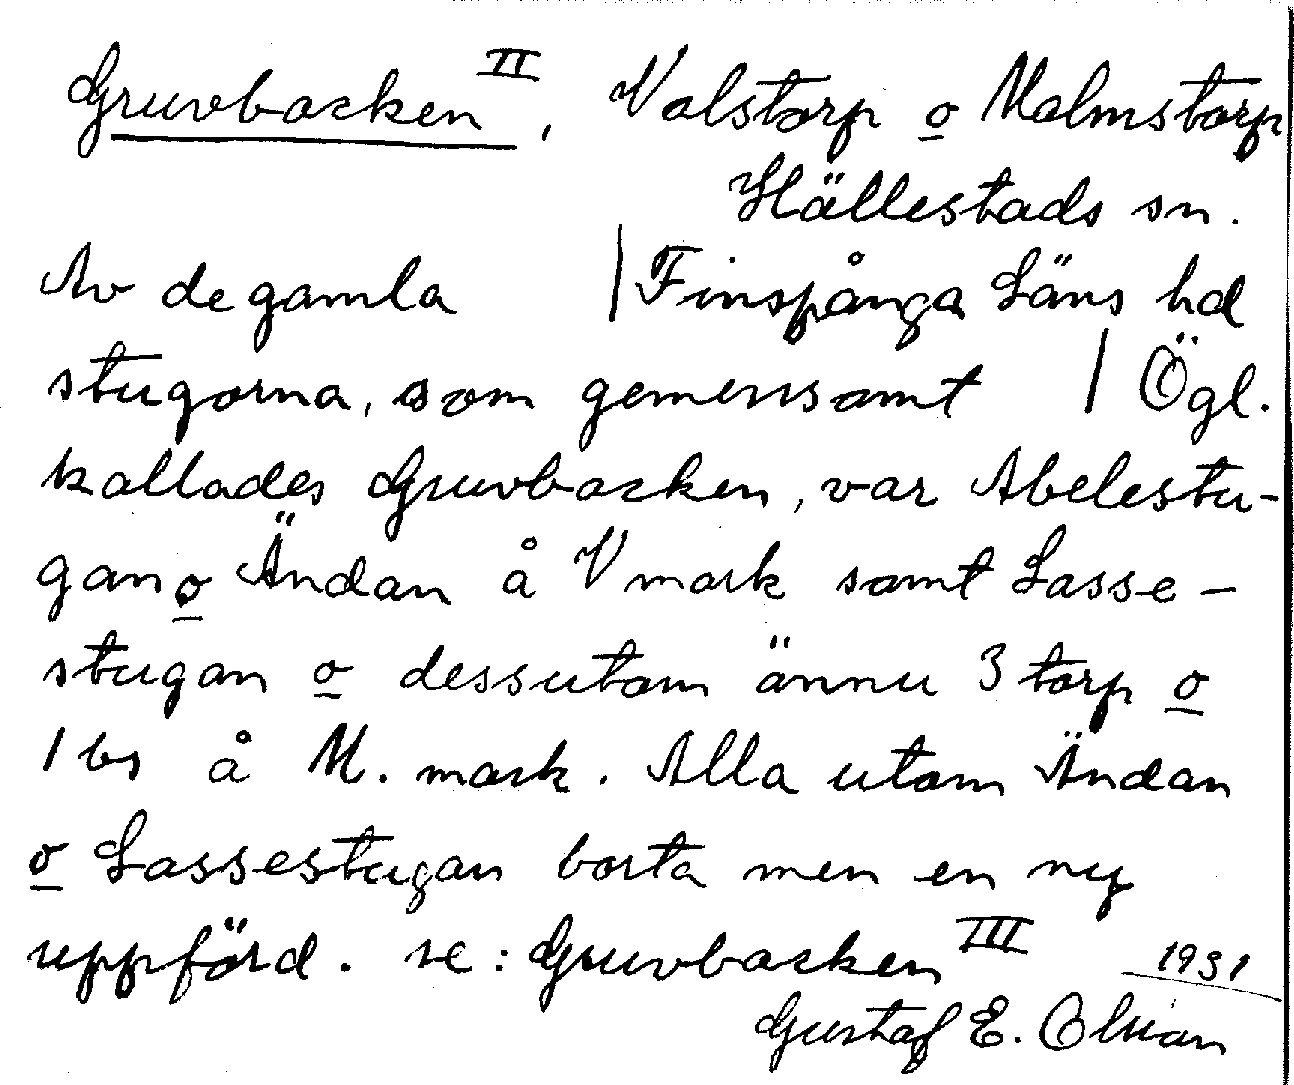 Gruvbacken II, Valstorp o Malmstorp
Hällestads sn.
Av de gamla | Finspånga Läns hd
stugorna, som gemensamt | Ögl.
kallades Gruvbacken, var Abelestu-
gan o Ändan å V mark samt Lasse-
stugan o dessutom ännu 3 torp o
1 bs å M. mark. Alla utom Ändan
o Lassestugan borta men en ny
uppförd. se: Gruvbacken III 1931
Gustaf E.